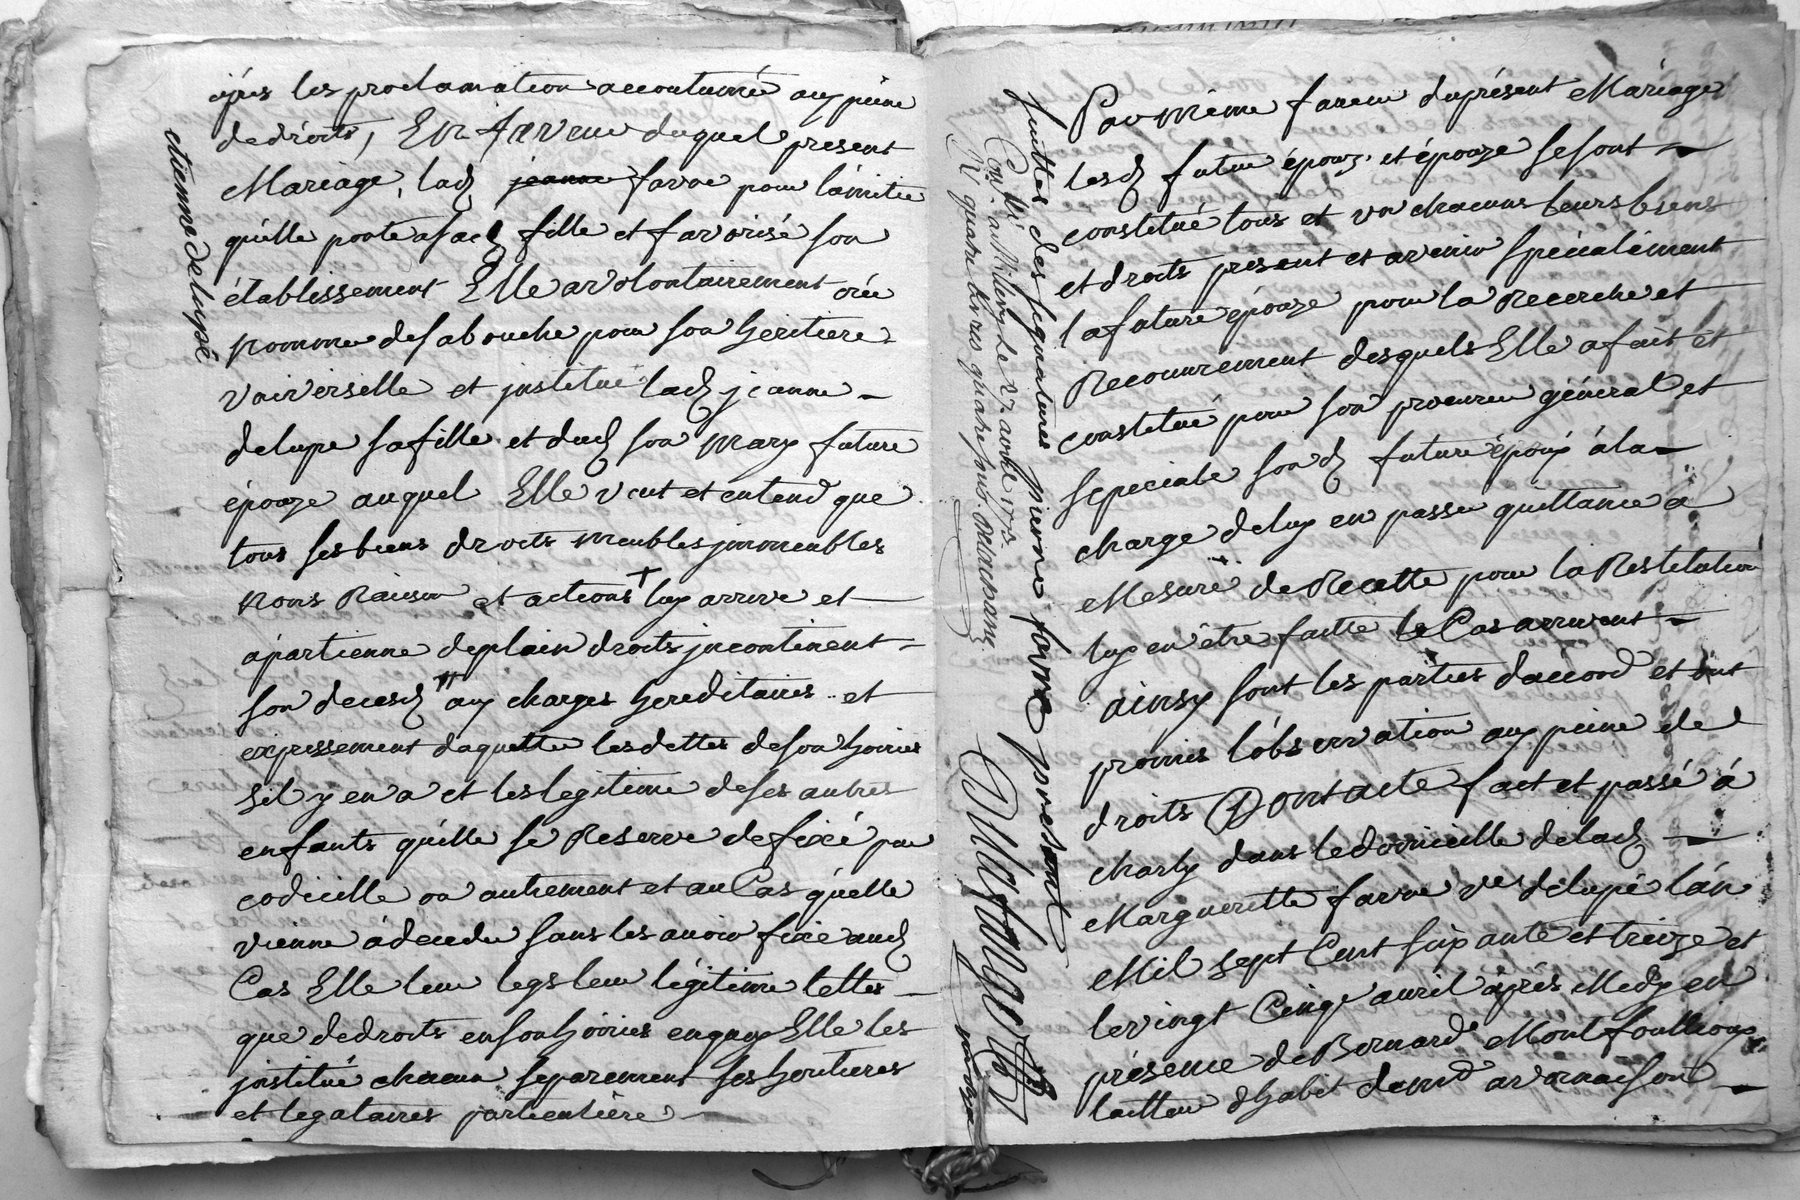 etienne delupé
ápres les proclamation accoutumée aux peine
de droits, En faveur duquel present
Mariage, lad. jeanne favre pour lámitie
quélle porte a sad. fille et favorisé son
établissement Elle a volontairement crée
nomme de sa bouche pour son heritiere
vniverselle et jnstitué lad. jeanne
delupe sa fille et dud. son mary future
épouze auquel Elle veut et entend que
tous ses biens droits meubles jmmeubles
noms Raison et actions + luy arrive et
ápartienne de plain droits jncontinent
son decesd. aux charges hereditaires et
expressement daquitter les dettes de son hoiries
sil y en a et les legitime de ses autres
enfants quélle se Reserve de fixé par
codicille ou autrement et au Cas quélle
vienne á deceder sans les avoir fixé aud.
Cas Elle leur legs leur légitime telles
que de droits en son hoiries en quoy Elle les
jnstitué chacun separement ses heritieres
et legataires particulière
Par même faveur du présent Mariage
lesd. futur époux et épouze se sont
constitué tous et vn chacuns leurs biens
et droits present et avenir spécialément
la future épouze pour la Recerche et
Recouvrement desquels Elle a fait et
constitué pour son procureur général et
speciale sond. future époux á la
charge deluy en passer quittance a
Mesure de Recette pour la Restitution
luy en être faitte le Cas arrivent
ainsy sont les parties daccord et ont
promis lóbservation aux peine de
droits Dont acte fact et passé á
charly dans le domicille de lad.
Margueritte favre ve délupé lán
Mil sept Cent soixante et treize et
le vingt Cinqe avril áprés Midy en
présence de Bernard Montfoulloux
taitteur d'habit demt a vernaison
juittes des segnatures pierre favre presant
Con. a Millery Le 27 avril 1773
R. quatre livres quatre sous